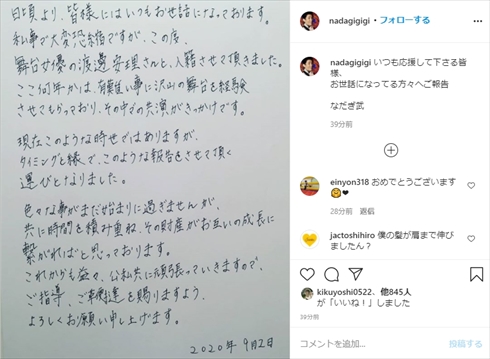 日頃より、皆様にはいつもお世話になっております。
私事で大変恐縮ですが、この度、
舞台女優の渡邊安理さんと、入籍させて頂きました。
ここ何年かは、有難い事に沢山の舞台を経験
させてもらっており、その中での共演がきっかけです。
現在このような時世ではありますが、
タイミングと縁で、このような報告をさせて頂く
運びとなりました。
色々な事がまだ始まりに過ぎませんが、
共に時間を積み重ね、その財産がお互いの成長に
繋がればと思っております。
これからも益々、公私共に頑張っていきますので、
ご指導、ご鞭撻を賜りますよう、
よろしくお願い申し上げます。
2020年 9月2日
nadagigigi • フォローする
nadagigigi いつも応援して下さる皆
様、
お世話になってる方々へご報告
なだぎ武
39分前
einyon318 おめでとうございます
28分前 返信
jactoshihiro 僕の髪が肩まで伸び
ましたん?
kikuyoshi0522、他845人
が「いいね!」しました
39分前
コメントを追加... 投稿する